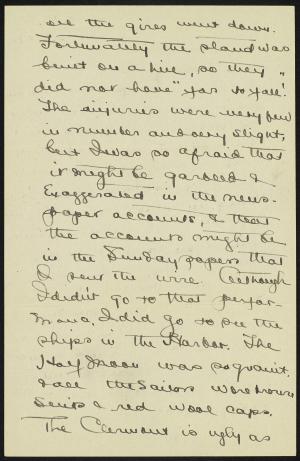 all the girls went down.
Fortunately the stand was
built on a hill, so they "
did not have" far to fall!
The injuries were very few
in number and very slight,
but I was so afraid that
it might be garbled &
exaggerated in the news-
paper accounts, & that
the accounts might be
in the Sunday papers that
I sent the wire. Although
I didn't go to that perfor-
mance, I did go to see the
ships in the Harbor. The
Half Moon was so quaint.
& all the sailors wore brown
suits & red wool caps.
The Clermont is ugly as